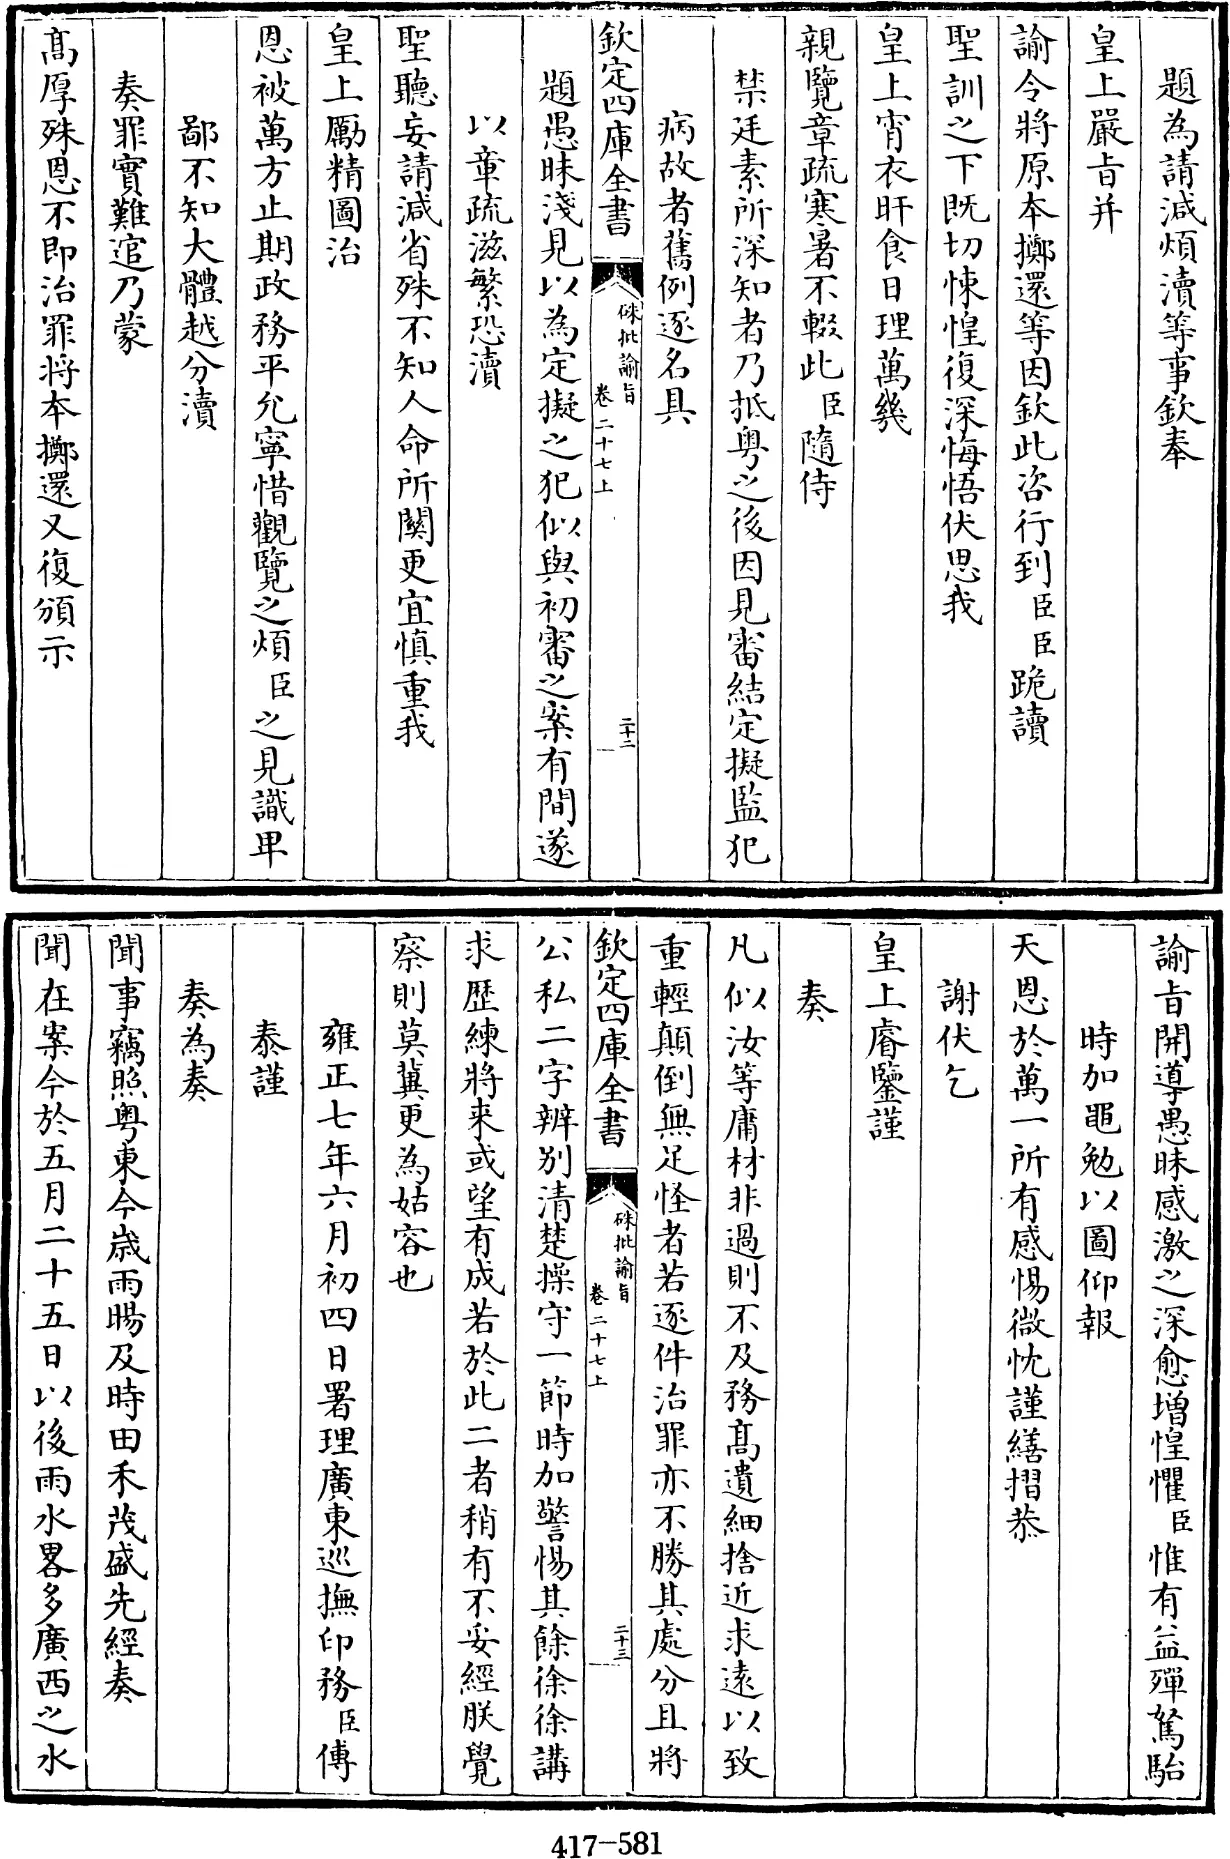 題為請減煩瀆等事欽奉
皇上嚴㫖并
諭令將原本擲還等因欽此咨行到臣臣跪讀
聖訓之下既切悚惶復深悔悟伏思我
皇上宵衣旰食日理萬幾
親覽章疏寒暑不輟此臣隨侍
禁廷素所深知者乃抵粵之後因見審結定擬監犯
病故者舊例逐名具
欽定四庫全書
硃批諭旨
卷二十七上
二十二
題愚昧淺見以為定擬之犯似與初審之案有間遂
以章疏滋繁恐瀆
聖聽妄請減省殊不知人命所關更宜慎重我
皇上勵精圖治
恩被萬方止期政務平允寧惜觀覽之煩臣之見識卑
鄙不知大體越分瀆
奏罪實難逭乃蒙
髙厚殊恩不即治罪將本擲還又復頒示
諭㫖開導愚昧感激之深愈增惶懼臣惟有益殫駑駘
時加黽勉以圖仰報
天恩於萬一所有感惕微忱謹繕摺恭
謝伏乞
皇上睿鑒謹
奏
凡似汝等庸材非過則不及務髙遺細捨近求遠以致
重輕顛倒無足怪者若逐件治罪亦不勝其處分且將
欽定四庫全書
硃批諭旨
卷二十七上
二十三
公私二字辨别清楚操守一節時加警惕其餘徐徐講
求歴練將來或望有成若於此二者稍有不妥經朕覺
察則莫冀更為姑容也
雍正七年六月初四日署理廣東巡撫印務臣傅
泰謹
奏為奏
聞事竊照粵東今歲雨暘及時田禾茂盛先經奏
聞在案今於五月二十五日以後雨水畧多廣西之水
417-581